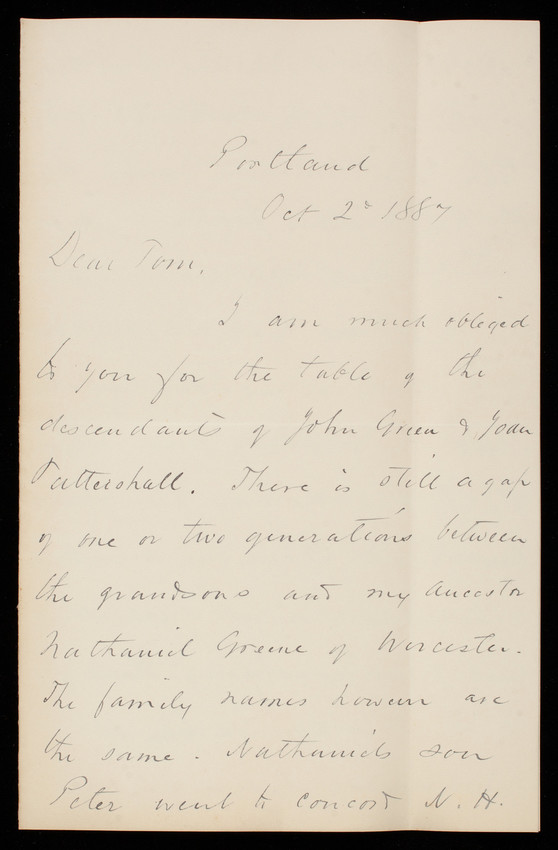 Portland
Oct 2d 1887
Dear Tom,
I am much obliged
to you for the table of the
descendants of John Green & Joan
Tattershall. There is still a gap
of one or two generations between
the grandsons and my ancestor
Nathaniel Greene of Worcester.
The family names however are
the same. Nathaniel's son
Peter went to Concord N. H.